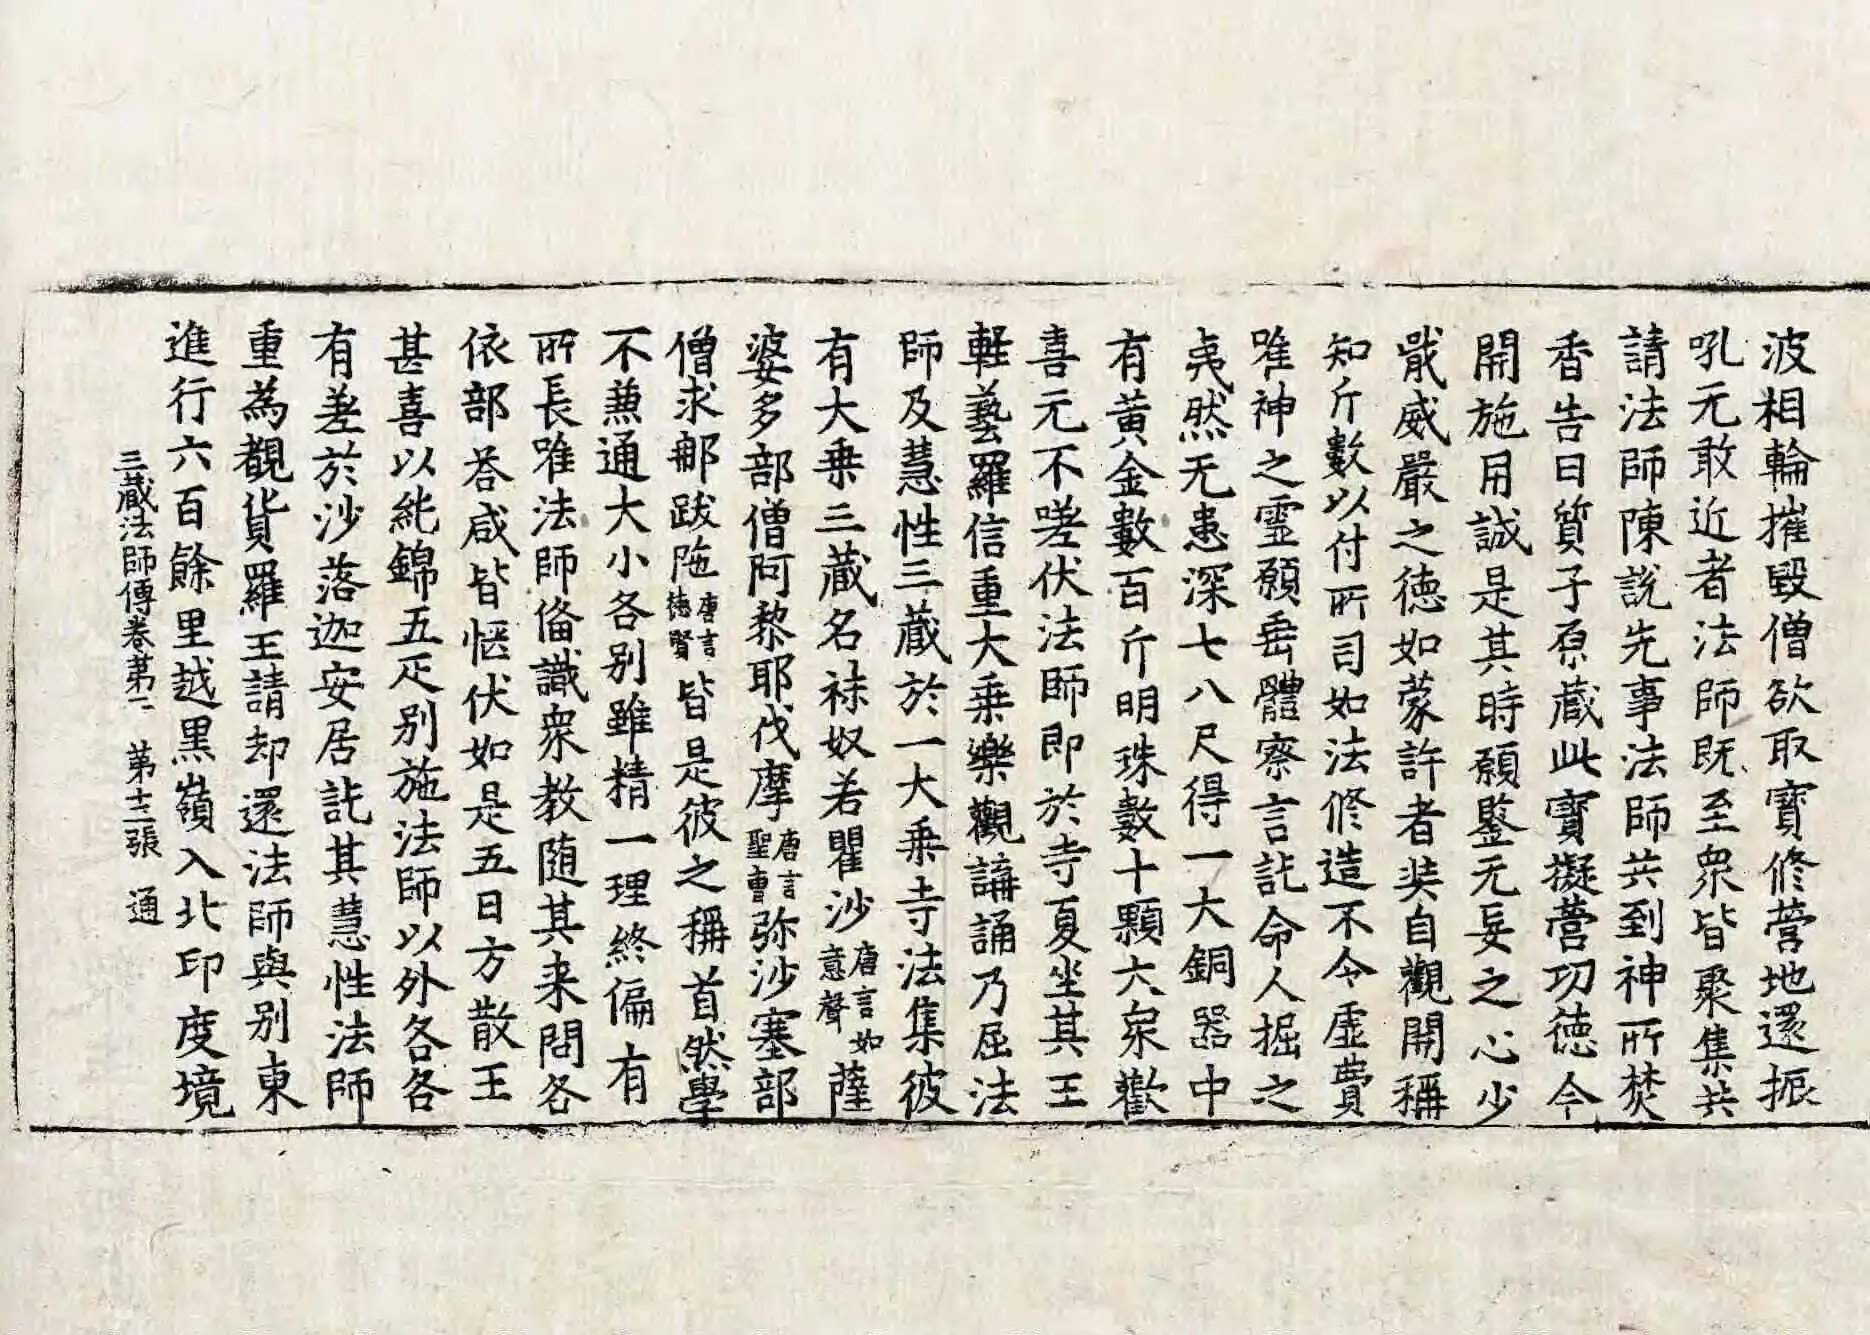 波相輪摧毀僧欲取寶修營地還振
吼无敢近者法師既至衆皆聚集共
請法師陳說先事法師共到神所焚
香告曰質子原藏此寶擬營功德今
開施用誠是其時願鑒无妄之心少
戢威嚴之德如蒙許者奘自觀開稱
知斤數以付所司如法修造不令虛費
唯神之靈願垂體察言訖命人掘之
夷然无患深七八尺得一大銅器中
有黃金數百斤明珠數十顆大衆歡
喜无不嗟伏法師即於寺夏坐其王
軽藝羅信重大乗樂觀講誦乃屈法
師及慧性三藏於一大乗寺法集彼
有大乗三藏名秣奴若瞿沙唐言如意聲薩
婆多部僧阿黎耶伐摩唐言聖胄弥沙塞部
僧求那跋陁唐言德賢皆是彼之稱首然學
不兼通大小各別雖精一理終偏有
所長唯法師俻識衆教随其来問各
依部荅咸皆愜伏如是五日方散王
甚喜以純錦五疋別施法師以外各各
有差於沙落迦安居訖其慧性法師
重為覩貨羅王請却還法師與別東
進行六百餘里越黒嶺入北印度境
三藏法師傳卷苐二 苐十三張 通